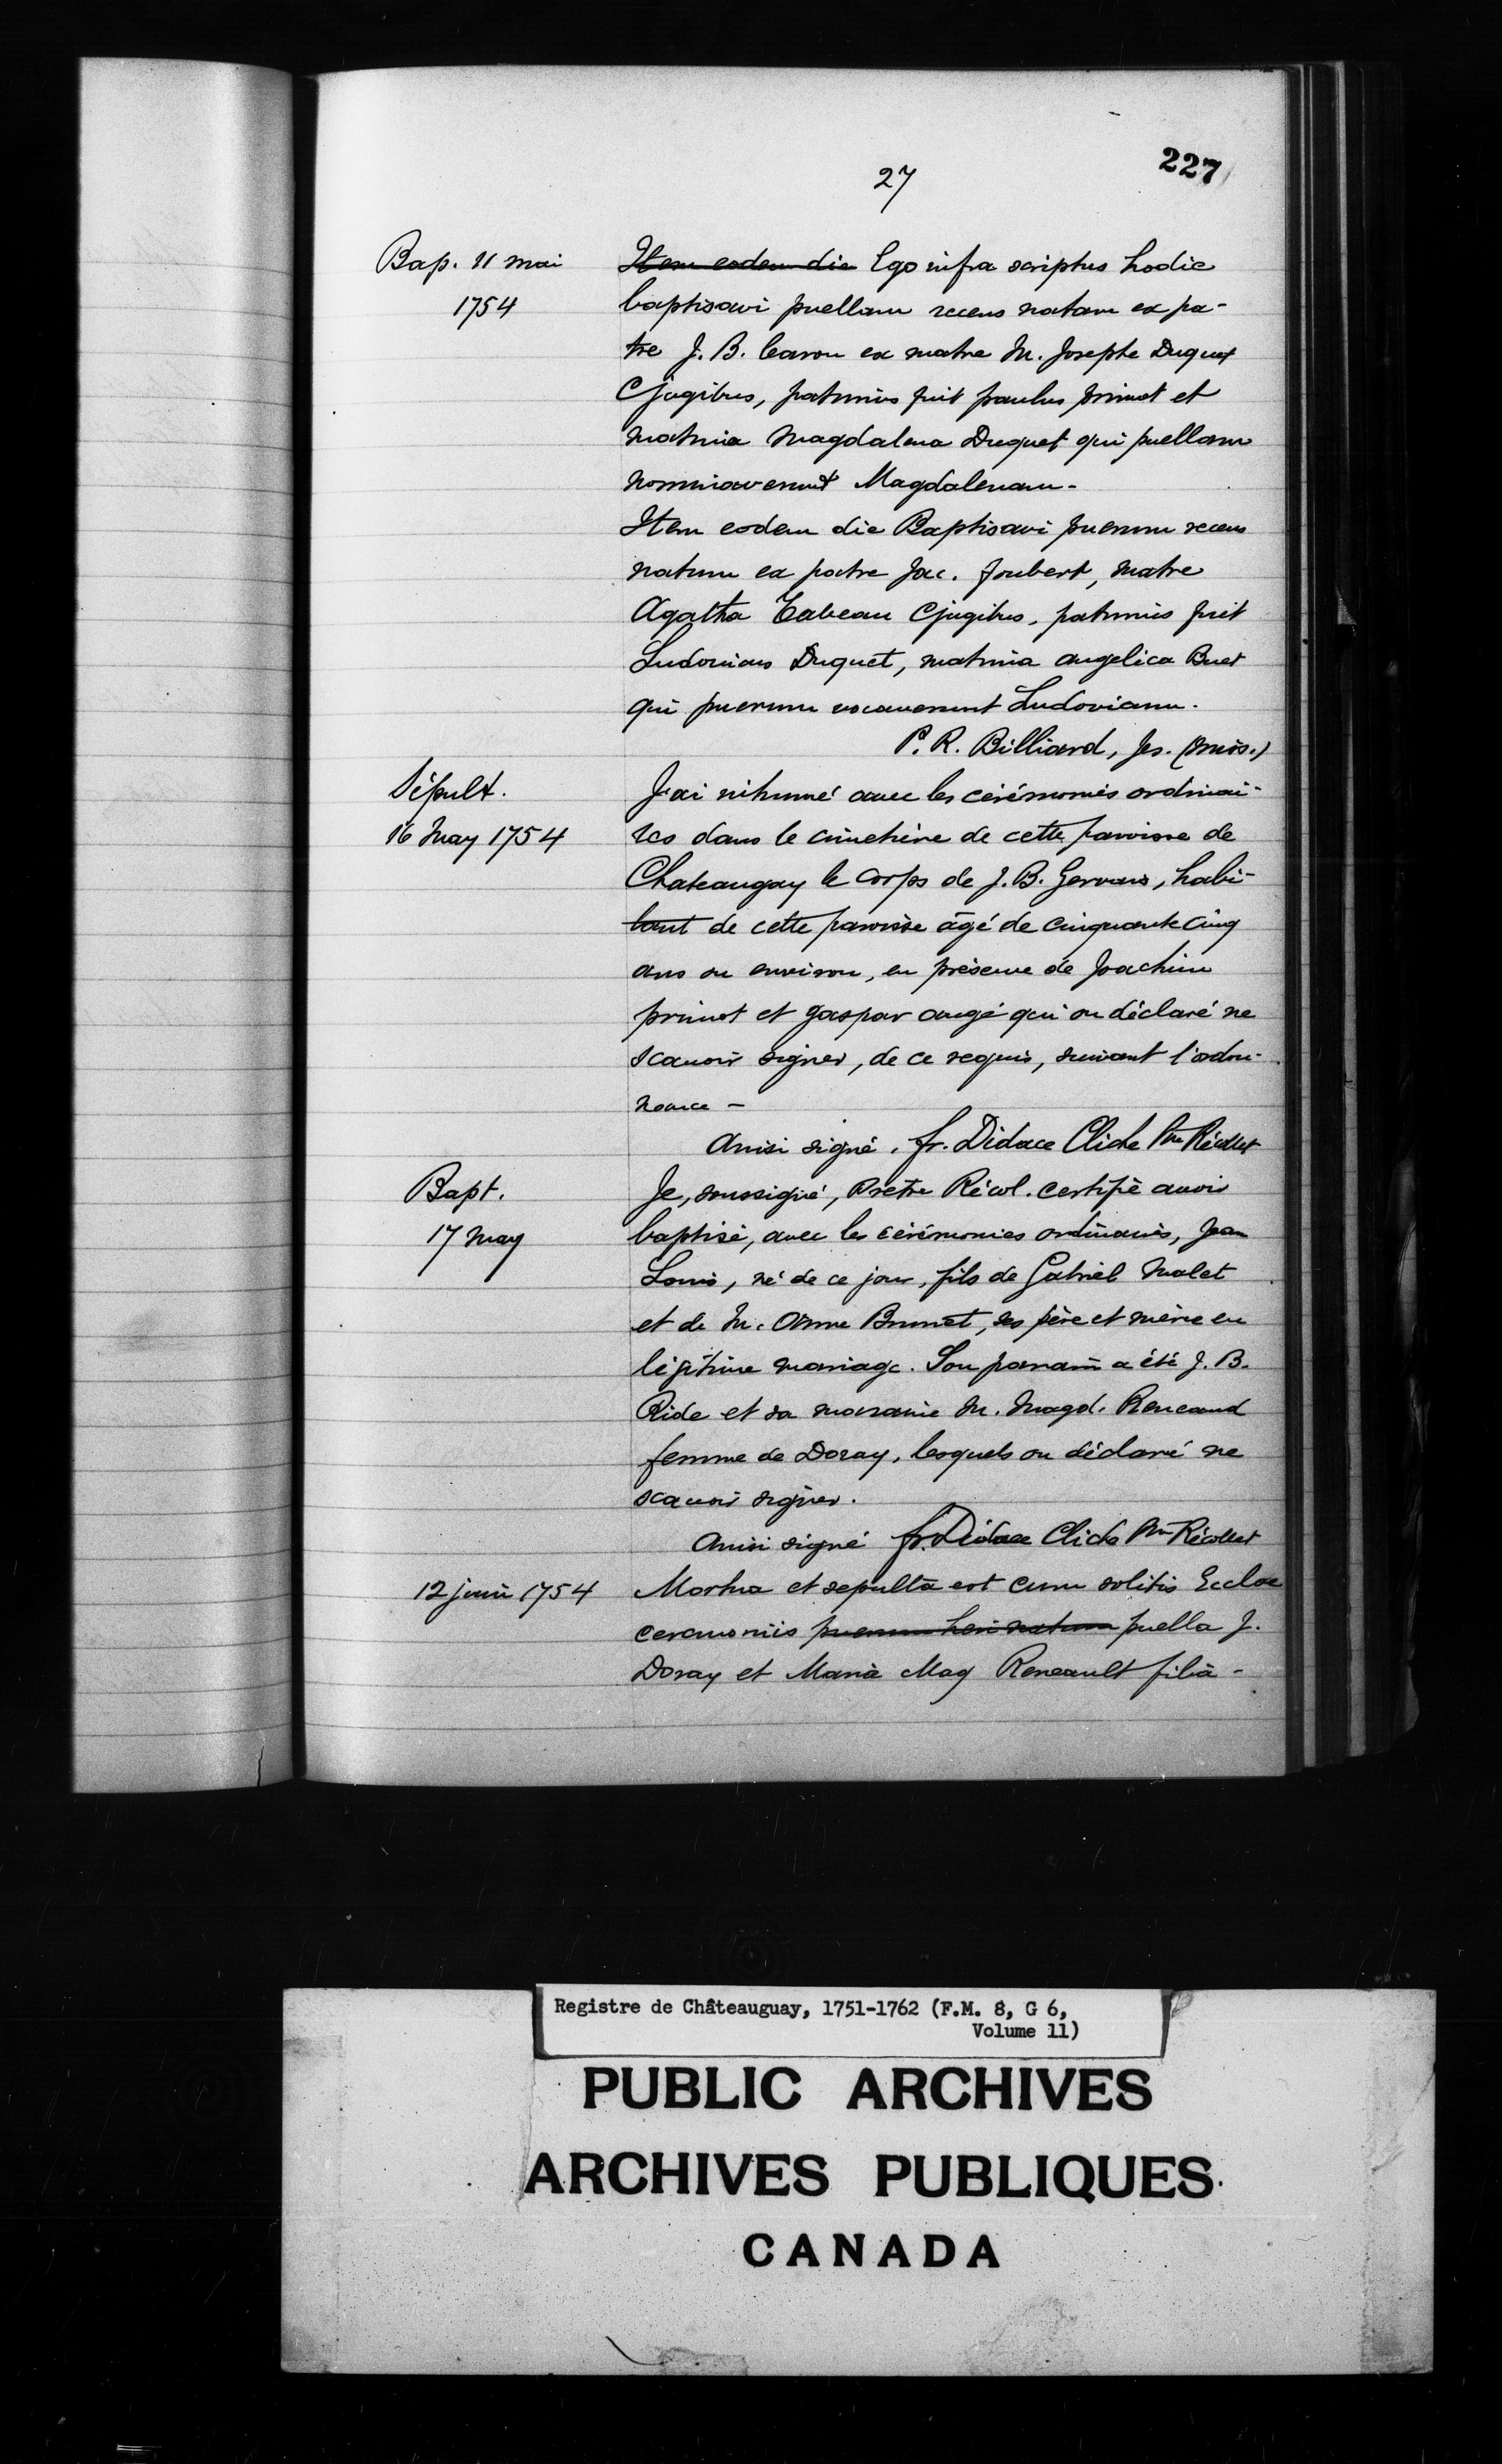 227
27
Bap. 11 mai
1754
Item eodem die Ego infra scriptus hodie
baptisavi puellam recens natam ex pa-
tre J. B. Caron ex matre M. Josephe Duquet
Cjugibus, patrinus fuit paulus primot et
matrina Magdalena Duquet qui puellam
nominaverunt Magdalenam-
Item eodem die Baptisavi puerum recens
natum ex patre Jac. Joubert, matre
Agatha Tabeau Cjugibus, patrinus fuit
Ludovicus Duquet, matrina angelica Buet
qui puerum vocaverunt Ludovicum.
P. R. Billiard, Jes. (miss.)
Sépult.
16 May 1754
J'ai inhumé avec les cérémonies ordinai-
res dans le cimetière de cette paroisse de
Chateaugay le corps de J. B. Gervais, habi-
tant de cette paroisse âgé de cinquante cinq
ans ou environ, en présence de Joachim
primot et gaspar augé qui on déclaré ne
scavoir signer, de ce requis, suivant l'ordon-
nance -
Ainsi signé, fr. Didace Cliche Ptre Récollet
Bapt.
17 May
Je, soussigné, Pretre Récol. certifie avoir
baptisé, avec les cérémonies ordinaires, Jean
Louis, né de ce jour, fils de Gabriel Malet
et de M. Anne Brunet, ses père et mère en
légitime mariage. Son parrain a été J. B.
Ride et sa maraine M. Magd. Reneaud
femme de Doray, lesquels on déclaré ne
scavoir signer.
Ainsi signé fr. Didace Cliche Ptre Récollet
12 juin 1754
Mortua et sepulta est cum solitis Ecclae
ceremoniis puerum heri natum puella J.
Doray et Maria Mag Reneault filia-
Registre de Châteauguay, 1751-1762 (F.M. 8, G 6,
Volume 11)
PUBLIC ARCHIVES
ARCHIVES PUBLIQUES
CANADA